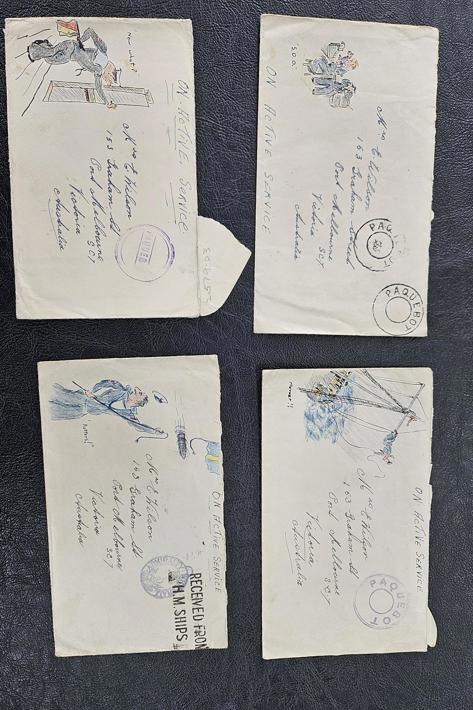 Now what?
ON ACTIVE SERVICE
Mrs E Wilson
163 Graham St
Port Melbourne
SC7
Victoria
Australia
"S.O.D."
ON ACTIVE SERVICE
Mrs E Wilson
163 Graham Street
Port Melbourne
Victoria SC7
Australia
PAQUEBOT
PAQUEBOT
ON ACTIVE SERVICE
Mrs E Wilson
163 Graham St
Port Melbourne
SC7
Victoria
Australia
RECEIVED FROM
H.M. SHIPS
ON ACTIVE SERVICE
Mrs E Wilson
163 Graham St
Port Melbourne
SC7
Victoria
Australia
PAQUEBOT